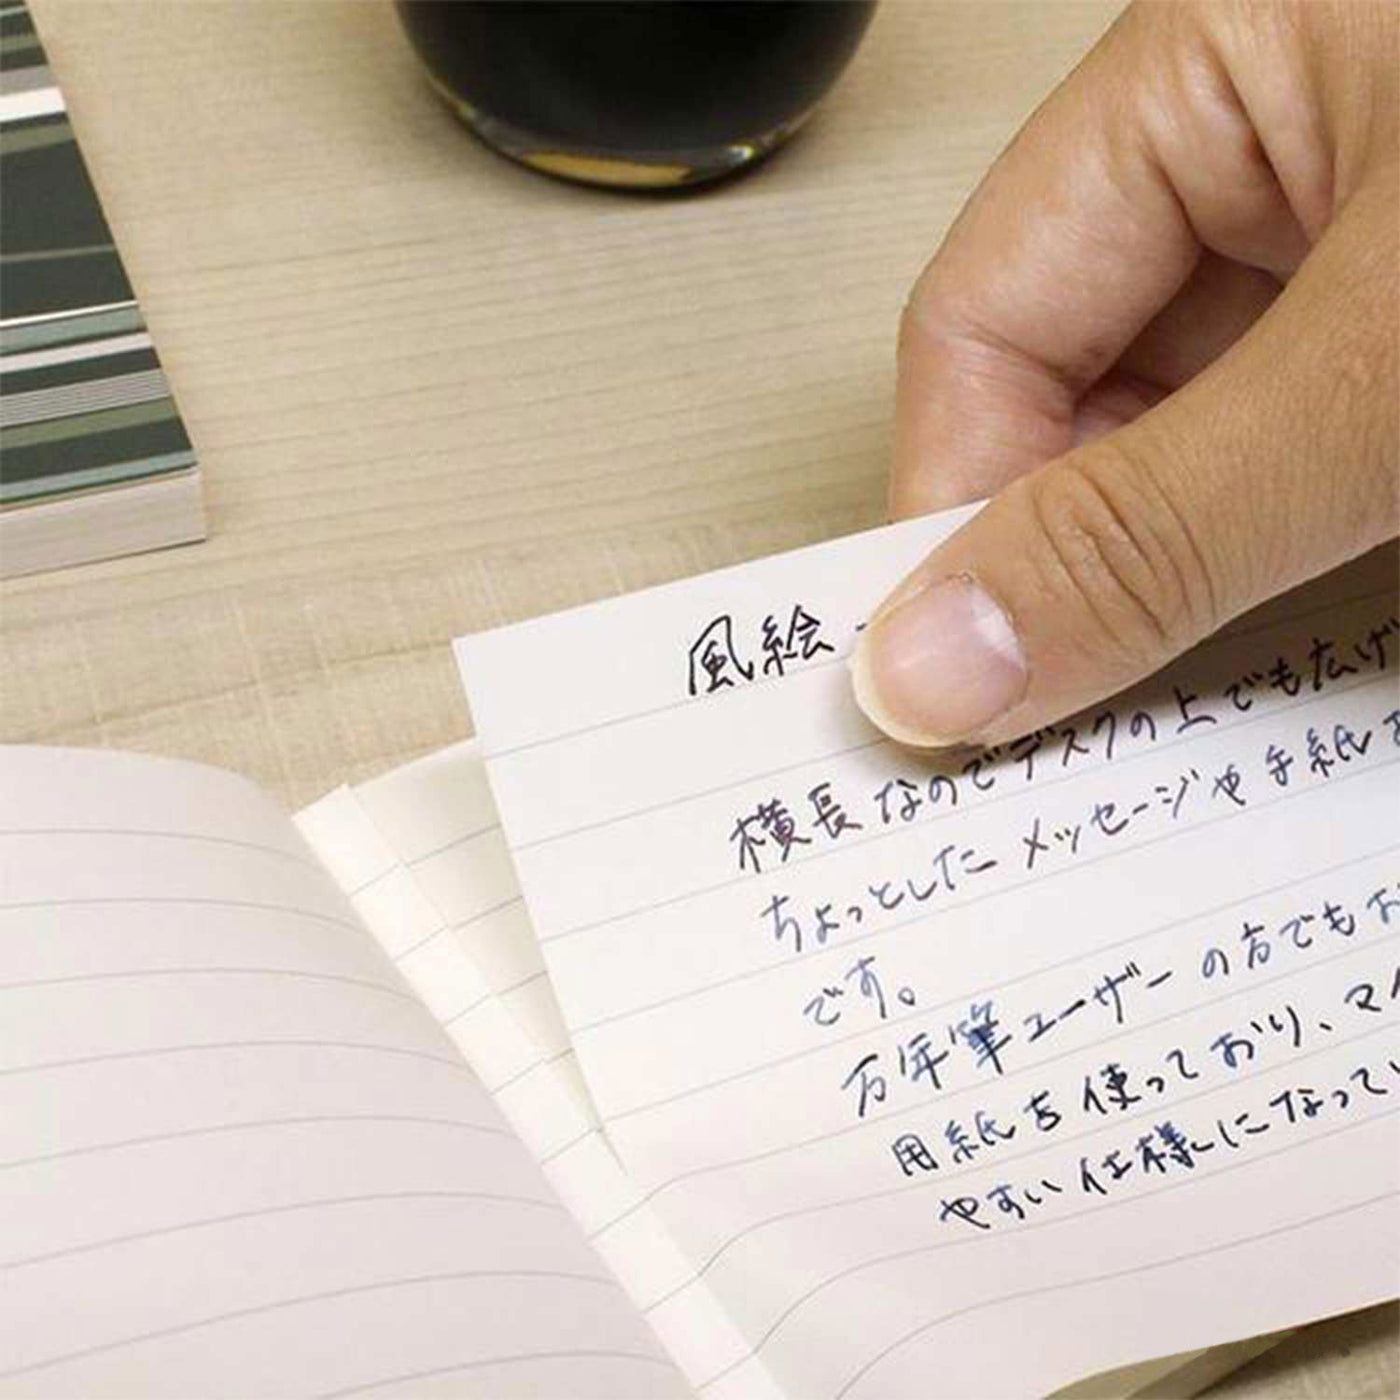 風絵
横長なのでデスクの上でも広げ
ちょっとしたメッセージや手紙
です。
万年筆ユーザーの方でもお
用紙を使っており、マイ
やすい仕様になってい